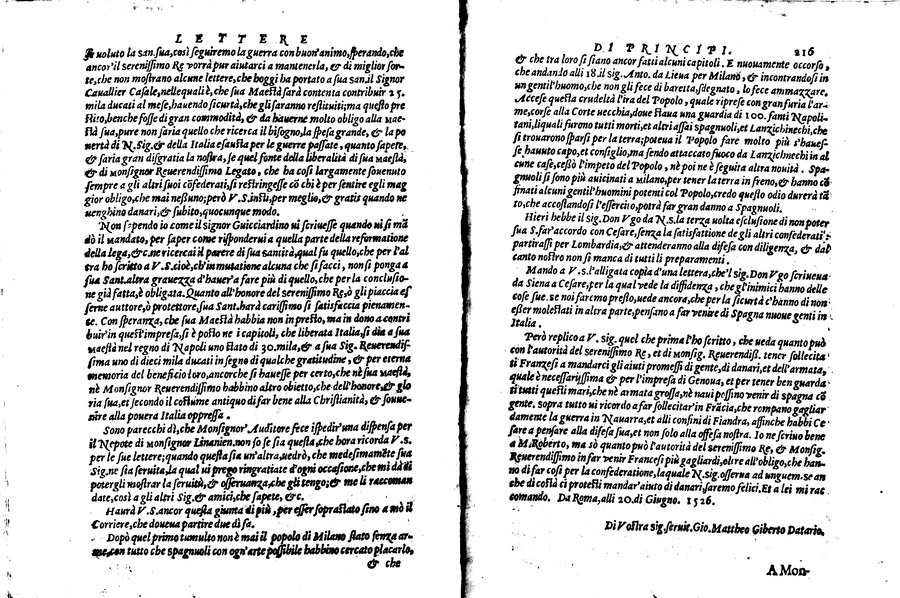 LETTERE
è uoluto la san.sua, così seguiremo la guerra con buon'animo, sperando, che
ancor'il serenissimo Re vorrà pur aiutarci a mantenerla, & di miglior sor-
te, che non mostrano alcune lettere, che hoggi ha portato a sua san.il Signor
Cauallier Casale, nellequali è, che sua Maestà sarà contenta contribuir 25.
mila ducati al mese, hauendo sicurtà, che gli saranno restituiti; ma questo pre
stito, benche fosse di gran commodità, & da hauerne molto obligo alla Mae-
stà sua, pure non saria quello che ricerca il bisogno, la spesa grande, & la po
uertà di N.Sig. & della Italia esausta per le guerre passate, quanto sapete,
& saria gran disgratia la nostra, se quel fonte della liberalità di sua maestà,
& di Monsignor Reuerendissimo Legato, che ha così largamente souenuto
sempre a gli altri suoi cōfederati, si restringesse cō chi è per sentire egli mag
gior obligo, che mai nessuno; però V.S. insti, per meglio, & gratis quando ne
uenghino danari, & subito, quocunque modo.
Non spendo io come il signor Guicciardino ui scriuesse quando ui si mā
dò il Mandato, per saper come risponderui a quella parte della reformatione
della lega, &c. ne ricercai il parere di sua santità, qual fu quello, che per l'al
tra ho scritto a V.S. cioè, ch'in mutatione alcuna che si facci, non si ponga a
sua Sant. altra grauezza d'hauer a fare più di quello, che per la conclusio-
ne già fatta, è obligata. Quanto all'honore del serenissimo Re, o gli piaccia es
serne auttore, ò protettore, sua Sant. harà carissimo si satisfaccia pienamen-
te. Con speranza, che sua Maestà habbia non in presto, ma in dono a contri
buir'in quest'impresa, si è posto ne i capitoli, che liberata Italia, si dia a sua
maestà nel regno di Napoli uno stato di 30. mila, & a sua Sig. Reuerendis-
sima uno di dieci mila ducati in segno di qualche gratitudine, & per eterna
memoria del beneficio loro, ancorche si hauesse per certo, che nè sua maestà,
nè Monsignor Reuerendissimo habbino altro obietto, che dell'honore, & glo
ria sua, et secondo il costume antiquo di far bene alla Christianità, & souue-
nire alla pouera Italia oppressa.
Sono parecchi dì, che Monsignor Auditore fece ispedir una dispensa per
il Nepote di Monsignor Linanien. non so se sia questa, che hora ricorda V.S.
per le sue lettere; quando questa sia un'altra, uedrò, che medesimamēte sua
Sig. ne sia seruita, la qual ui prego ringratiate d'ogni occasione, che mi dà di
potergli mostrar la seruitù, & osseruanza, che gli tengo; & me li raccoman
date, così a gli altri Sig. & amici, che sapete, &c.
Haurà V.S. ancor questa giunta di più, per esser soprastato sino a mò il
Corriere, che doueua partire due dì fa.
Dopò quel primo tumulto non è mai il popolo di Milano stato senza ar-
me, con tutto che spagnuoli con ogn'arte possibile habbino cercato placarlo,
& che
DI PRINCIPI. 216
& che tra loro si siano ancor fatti alcuni capitoli. E nuouamente occorso,
che andando alli 18. il sig. Anto. da Lieua per Milano, & incontrandosi in
un gentil'huomo, che non gli fece di baretta, sdegnato, lo fece ammazzare.
Accese questa crudeltà l'ira del Popolo, quale riprese con gran furia l'ar-
me, corse alla Corte uecchia, doue staua una guardia di 100. fanti Napoli-
tani, liquali furono tutti morti, et altri assai spagnuoli, et Lanzichinechi, che
si trouarono sparsi per la terra; poteua il Popolo fare molto più s'hauef-
se hauuto capo, et consiglio, ma sendo attaccato fuoco da Lanzichnechi in al
cune case, cessò l'impeto del Popolo, nè poi ne è seguita altra nouità. Spa-
gnuoli si sono più auicinati a Milano, per tener la terra in freno, & hanno cō
finati alcuni gentil'huomini potenti col Popolo, credo questo odio durerà tā
to, che accostandosi l'essercito, potrà far gran danno a Spagnuoli.
Hieri hebbe il sig. Don Vgo da N.S. la terza uolta esclusione di non poter
sua S. far'accordo con Cesare, senza la satisfattione de gli altri confederati:
partirassi per Lombardia, & attenderanno alla difesa con diligenza, & dal
canto nostro non si manca di tutti i preparamenti.
Mando a V.s. l'alligata copia d'una lettera, che'l sig. Don Vgo scriueua
da Siena a Cesare, per la qual vede la diffidenza, che gl'inimici hanno delle
cose sue. se noi farcmo presto, uede ancora, che per la sicurtà c'hanno di non
esser molestati in altra parte, pensano a far venire di Spagna nuoue genti in
Italia.
Però replico a V. sig. quel che prima l'ho scritto, che ueda quanto può
con l'autorità del serenissimo Re, et di Monsig. Reuerendiss. tener sollecita
ti Franzesi a mandarci gli aiuti promessi di gente, di danari, et dell'armata,
quale è necessarijssima & per l'impresa di Genoua, et per tener ben guarda
ti tutti questi mari, che nè armata grossa, nè naui possino venir di spagna cō
gente. sopra tutto ui ricordo a far sollecitar'in Frācia, che rompano gagliar
damente la guerra in Nauarra, et alli confini di Fiandra, affinche habbi Ce
sare a pensare alla difesa sua, et non solo alla offesa nostra. Io ne scriuo bene
a M. Roberto, ma sò quanto può l'autorità del serenissimo Re, & Monsig.
Reuerendissimo in far venir Francesi più gagliardi, oltre all'obligo, che han-
no di far così per la confederatione, laquale N. sig. osserua ad unguem. se an
che di costà ci protesti mandar'aiuto di danari, saremo felici. Et a lei mi rac
comando. Da Roma, alli 20. di Giugno. 1526.
Di Vostra sig. seruit. Gio. Mattheo Giberto Datario.
A Mon-